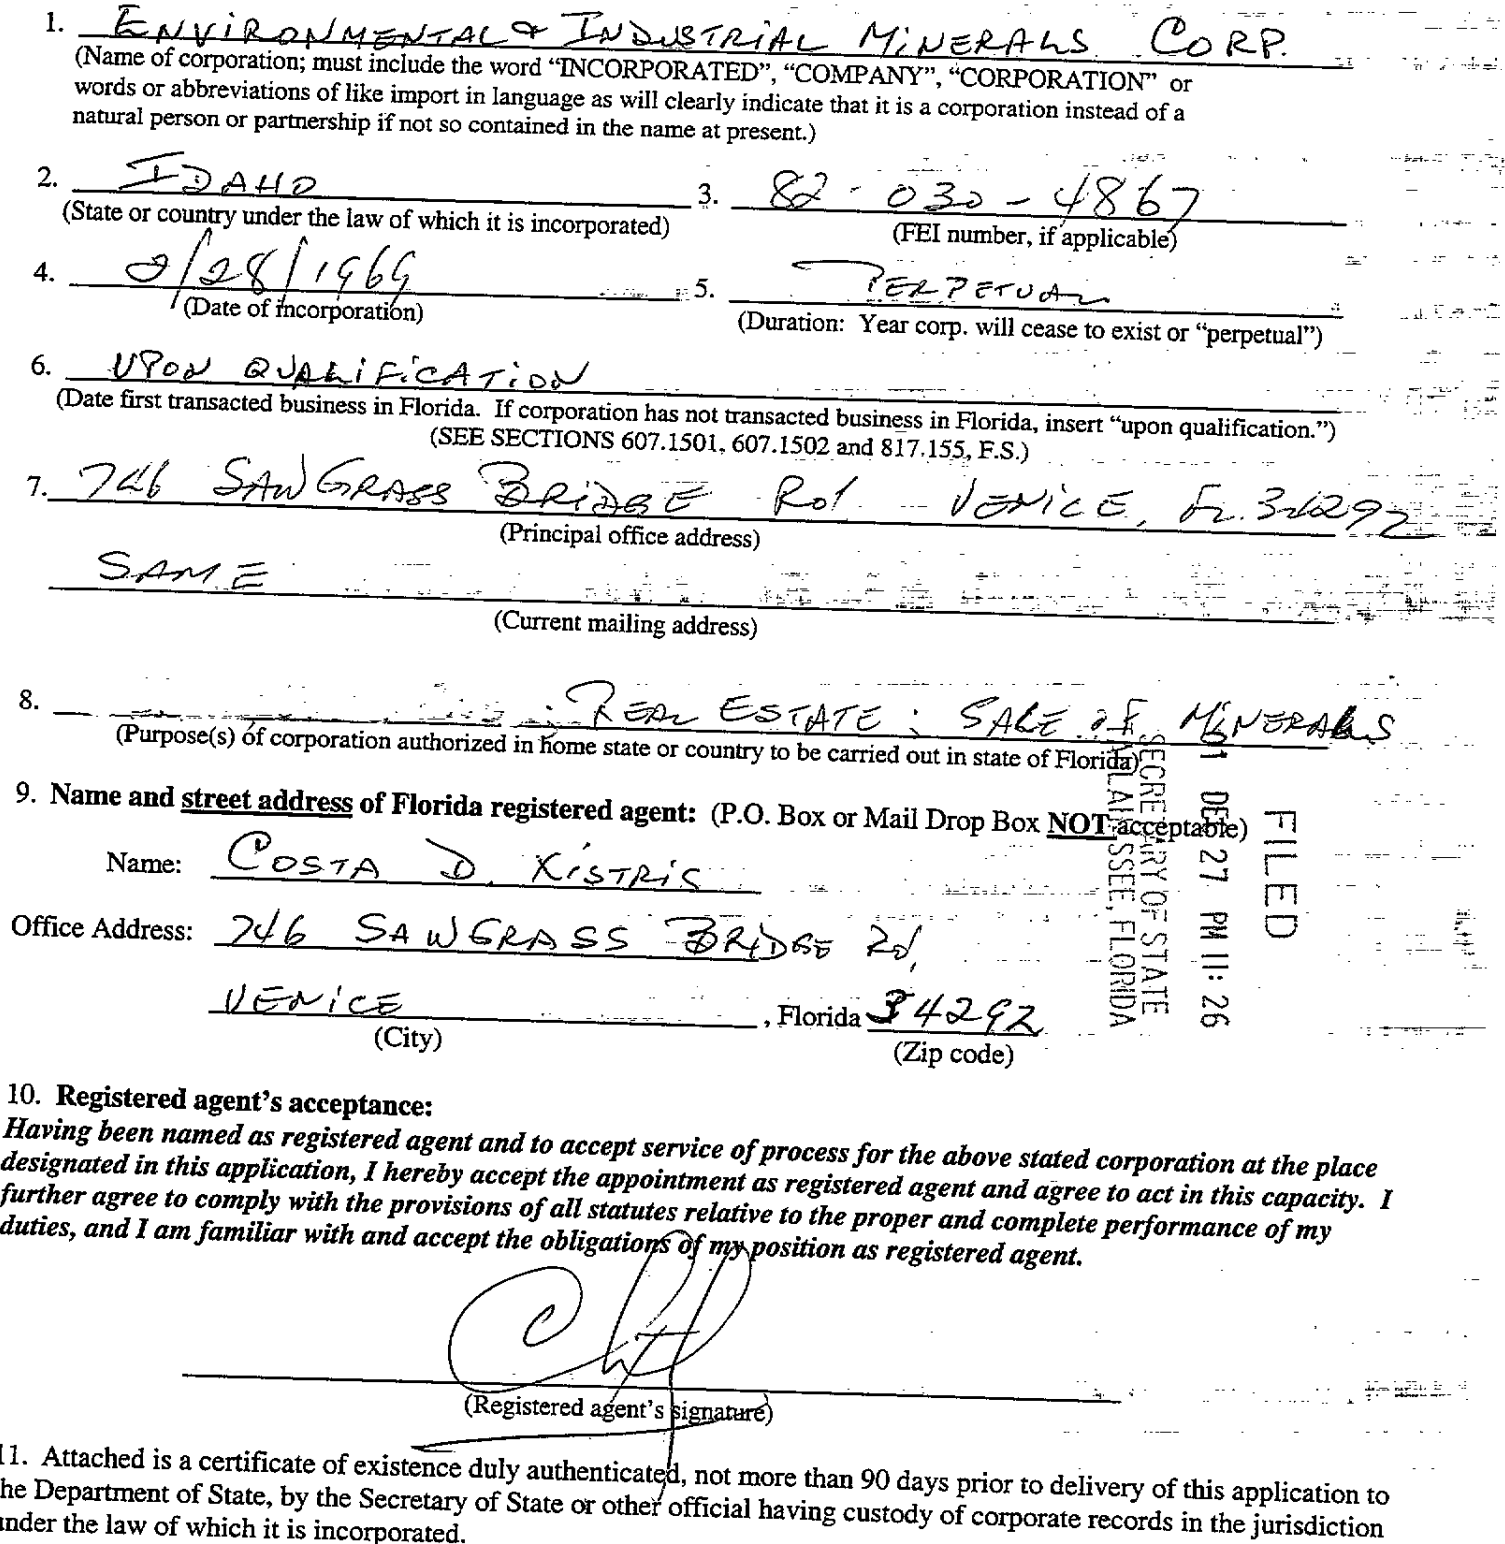 1. ENVIRONMENTAL & INDUSTRIAL MINERALS CORP.
(Name of corporation; must include the word “INCORPORATED”, “COMPANY”, “CORPORATION” or
words or abbreviations of like import in language as will clearly indicate that it is a corporation instead of a
natural person or partnership if not so contained in the name at present.)
2. IDAHO 3. 82-030-4867
(State or country under the law of which it is incorporated) (FEI number, if applicable)
4. 2/28/1969 5. PERPETUAL
(Date of incorporation) (Duration: Year corp. will cease to exist or “perpetual”)
6. UPON QUALIFICATION
(Date first transacted business in Florida. If corporation has not transacted business in Florida, insert “upon qualification.”)
(SEE SECTIONS 607.1501, 607.1502 and 817.155, F.S.)
7. 746 SAWGRASS BRIDGE Rd. VENICE, FL. 34292
(Principal office address)
SAME
(Current mailing address)
8. REAL ESTATE; SALE OF MINERALS
(Purpose(s) of corporation authorized in home state or country to be carried out in state of Florida)
9. Name and street address of Florida registered agent: (P.O. Box or Mail Drop Box NOT acceptable)
Name: COSTA D. XISTRIS
Office Address: 746 SAWGRASS BRIDGE Rd,
VENICE, Florida 34292
(City) (Zip code)
FILED
01 DEC 27 PM 11: 26
SECRETARY OF STATE
TALLAHASSEE, FLORIDA
10. Registered agent’s acceptance:
Having been named as registered agent and to accept service of process for the above stated corporation at the place
designated in this application, I hereby accept the appointment as registered agent and agree to act in this capacity. I
further agree to comply with the provisions of all statutes relative to the proper and complete performance of my
duties, and I am familiar with and accept the obligations of my position as registered agent.
(Registered agent’s signature)
11. Attached is a certificate of existence duly authenticated, not more than 90 days prior to delivery of this application to
he Department of State, by the Secretary of State or other official having custody of corporate records in the jurisdiction
under the law of which it is incorporated.